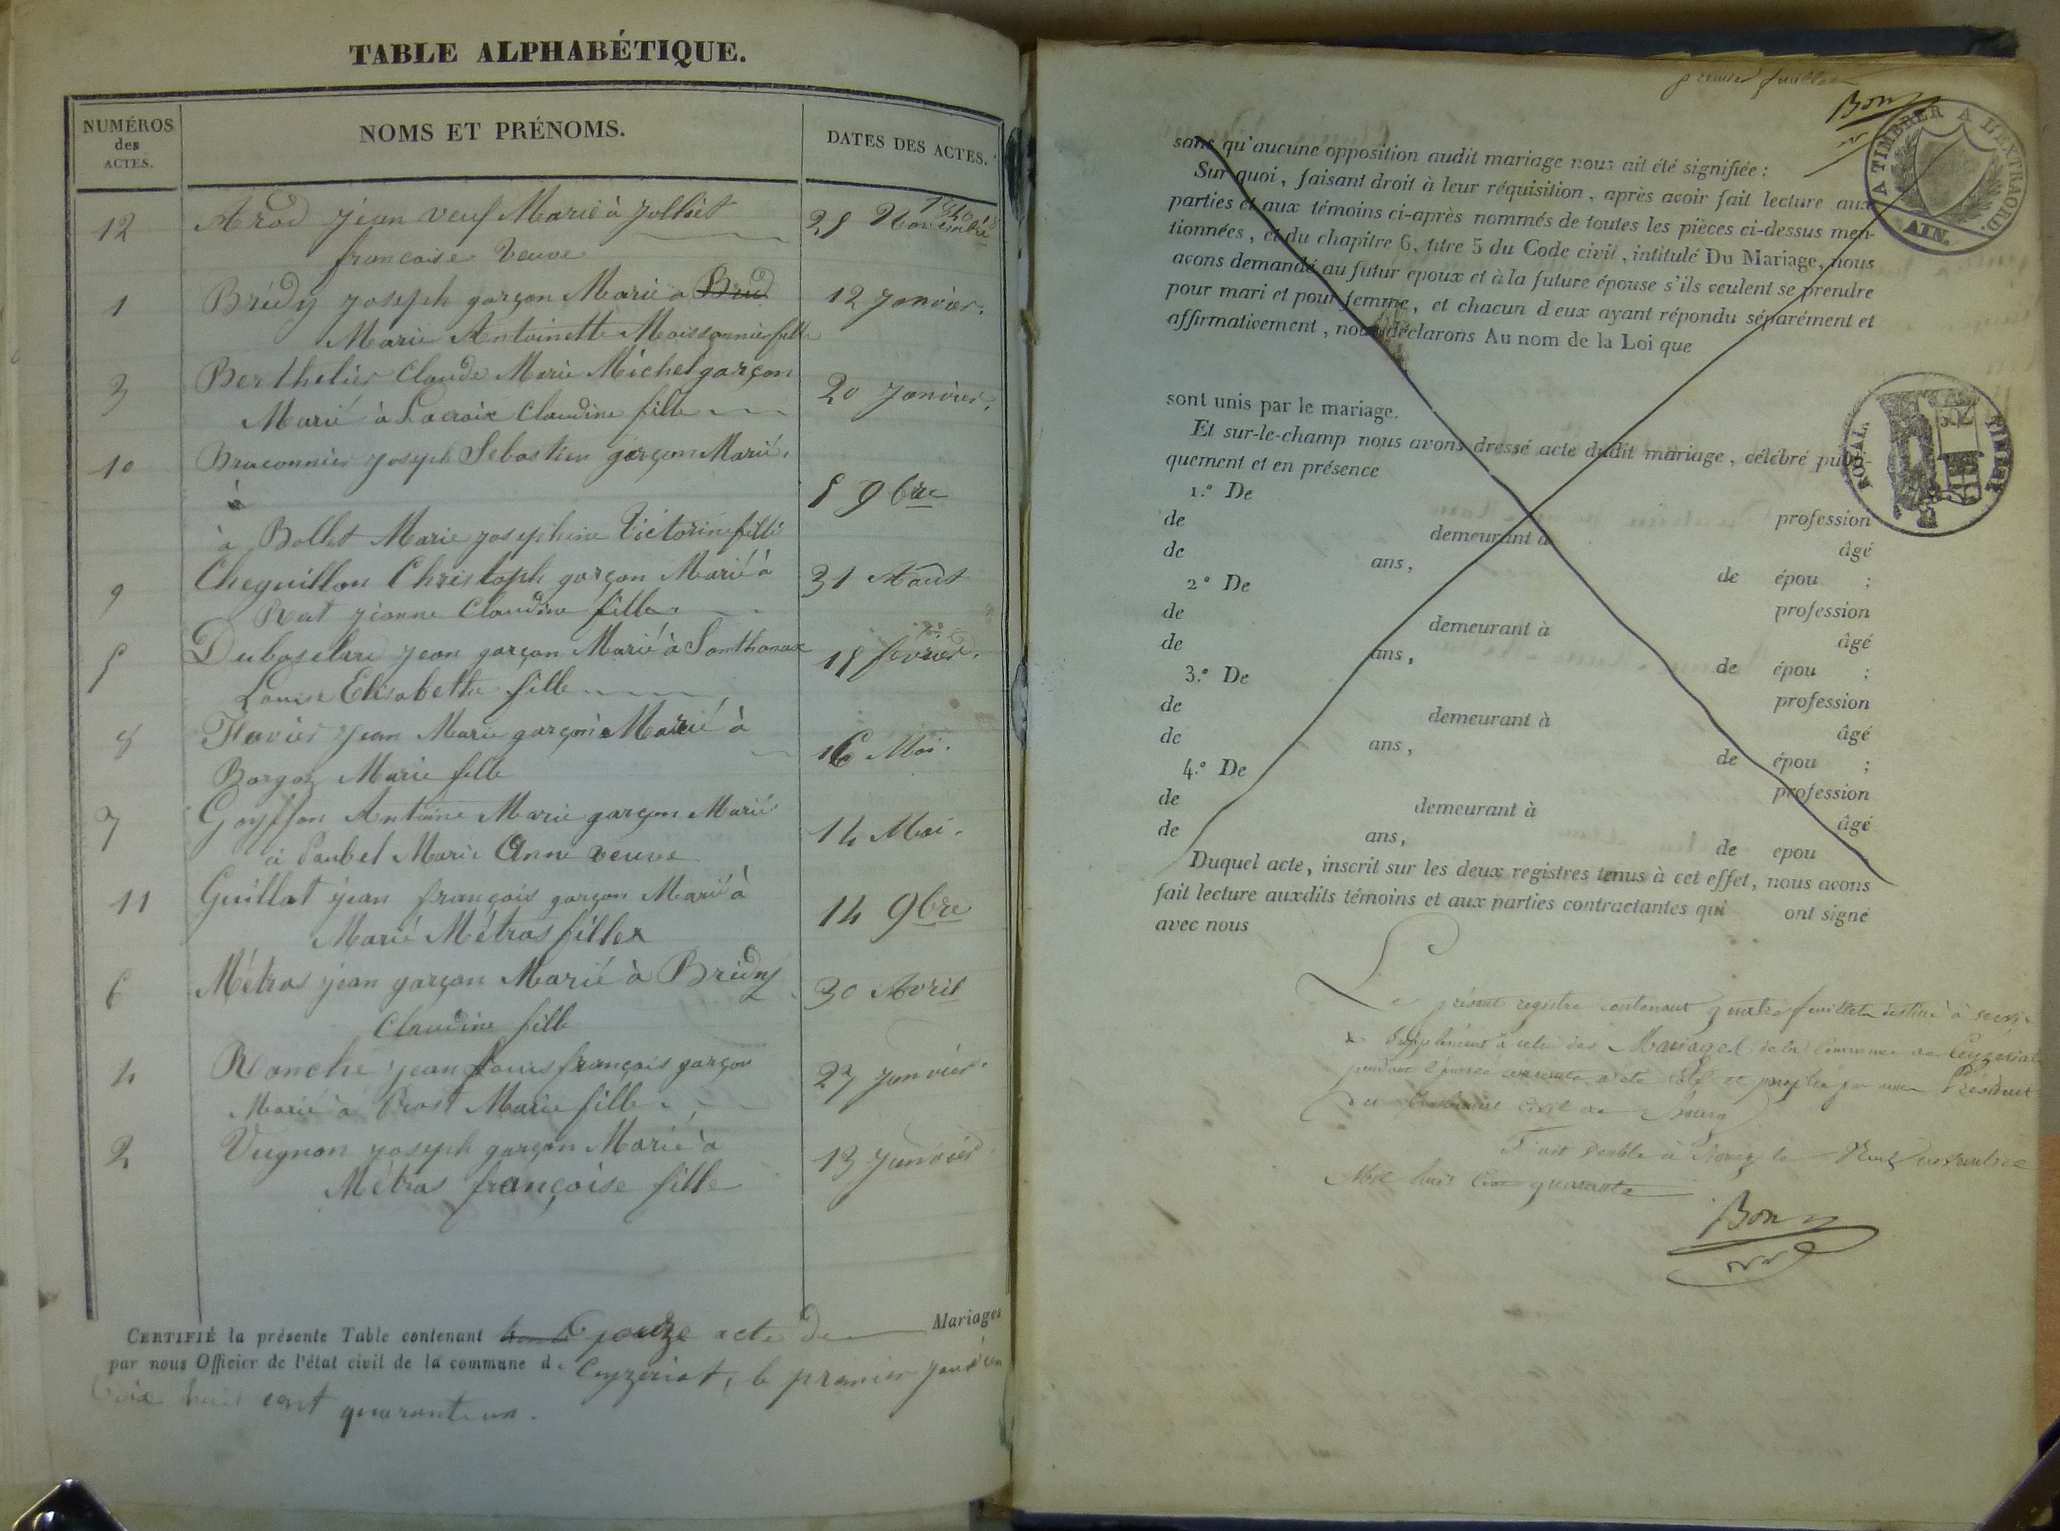 TABLE ALPHABÉTIQUE.
NUMÉROS
des
ACTES.
NOMS ET PRÉNOMS.
DATES DES ACTES.
12 Arod jean veuf Marié à Jolliet
françoise veuve
28 Novembre
1 Brédy joseph garçon Marié à
Marie Antoinette Moissonnier fille
12 janvier.
3 Berthelier Claude Marie Michel garçon
Marié à Lacroix Claudine fille
20 janvier.
10 Braconnier joseph Sebastien garçon Marié
à
à Bollet Marie josephine Victorine fille
8 9bre
9 Cheguillon Christoph garçon Marié à
Rat jeanne Claudine fille
31 Aout
5 jean garçon Marié à Santhonax
Louise Elisabethe fille
18 février.
8 Flavier jean Marie garçon Marié à
Borgoz Marie fille
16 Mai.
7 Goyffon Antoine Marie garçon Marié
à Paubel Marie Anne veuve
14 Mai.
11 Guillot jean françois garçon Marié à
Marie Métras fille
14 9bre
6 Métras jean garçon Marié à Brédy
Claudine fille
30 Avril
4 Ronche jean Louis françois garçon
Marié à Prost Marie fille
27 janvier.
2 Vugnon joseph garçon Marié à
Métras françoise fille
13 janvier
CERTIFIÉ la présente Table contenant douze acte de Mariages
par nous Officier de l'état civil de la commune d. Ceyzeriat, le premier janvier
huit cent quarante un.
premier feuillet
Bon
A TIMBRER A L'EXTRAORD.
AIN.
sans qu'aucune opposition audit mariage nous ait été signifiée;
Sur quoi, faisant droit à leur réquisition, après avoir fait lecture aux
parties et aux témoins ci-après nommés de toutes les pièces ci-dessus men-
tionnées, et du chapitre 6, titre 5 du Code civil, intitulé Du Mariage, nous
avons demandé au futur epoux et à la future épouse s'ils veulent se prendre
pour mari et pour femme, et chacun d eux ayant répondu séparément et
affirmativement, nous déclarons Au nom de la Loi que
sont unis par le mariage.
TIMBRE
ROYAL.
Et sur-le-champ nous avons dressé acte dudit mariage, célébré publi-
quement et en présence
1.° De
de demeurant à profession
de ans, âgé
2° De de épou ;
de demeurant à profession
de ans, âgé
3.° De de épou ;
de demeurant à profession
de ans, âgé
4.° De de épou ;
de demeurant à profession
de ans, âgé
de epou
Duquel acte, inscrit sur les deux registres tenus à cet effet, nous avons
fait lecture auxdits témoins et aux parties contractantes qui ont signé
avec nous
Le présent registre contenant quatre feuillets destiné à servir
de Supplément à celui des Mariages de la Commune de Ceyzeriat
pendant l'année courante a été coté et paraphé par nous Président
du tribunal civil de Bourg
Fait double à Bourg le Neuf novembre
Mil huit Cent quarante
Bon